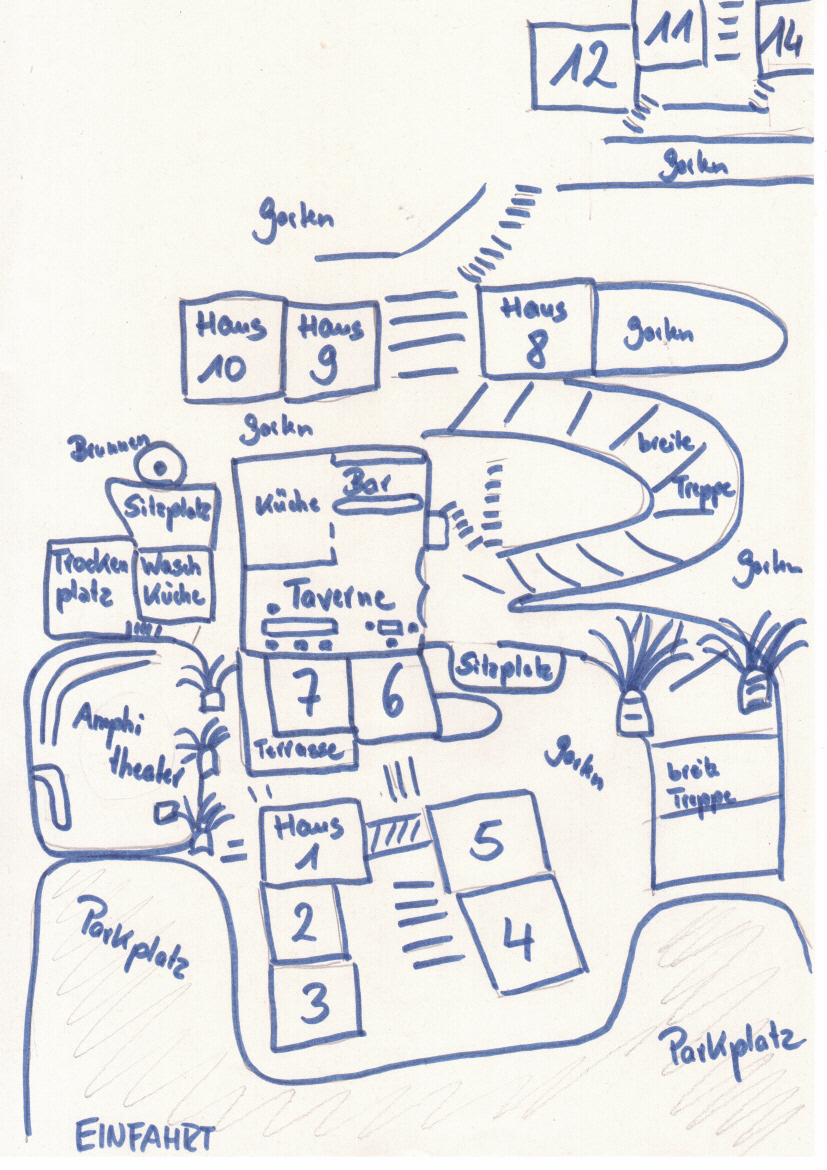 11
12
14
Garten
Garten
Haus
10
Haus
9
Haus
8
Garten
Garten
Brunnen
Sitzplatz
Trocken
platz
Wasch
Küche
Küche
Bar
Taverne
breite
Treppe
Garten
Sitzplatz
7
6
Terrasse
Amphi
theater
Garten
breite
Treppe
Haus
1
5
2
4
3
Parkplatz
Parkplatz
EINFAHRT